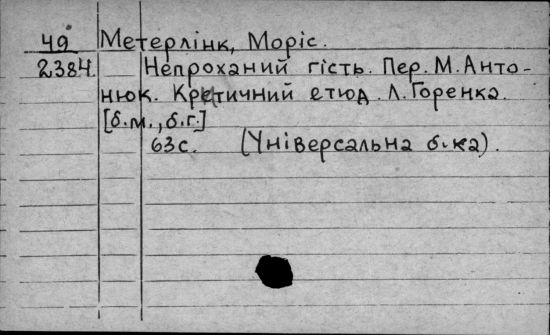 49 Метерлінк, Моріс.
2384. Непроханий гість. Пер. М. Анто-
нюк. Критичний етюд. Л. Горенка.
[б.м., б.г.]
63с. (Універсальна б-ка).